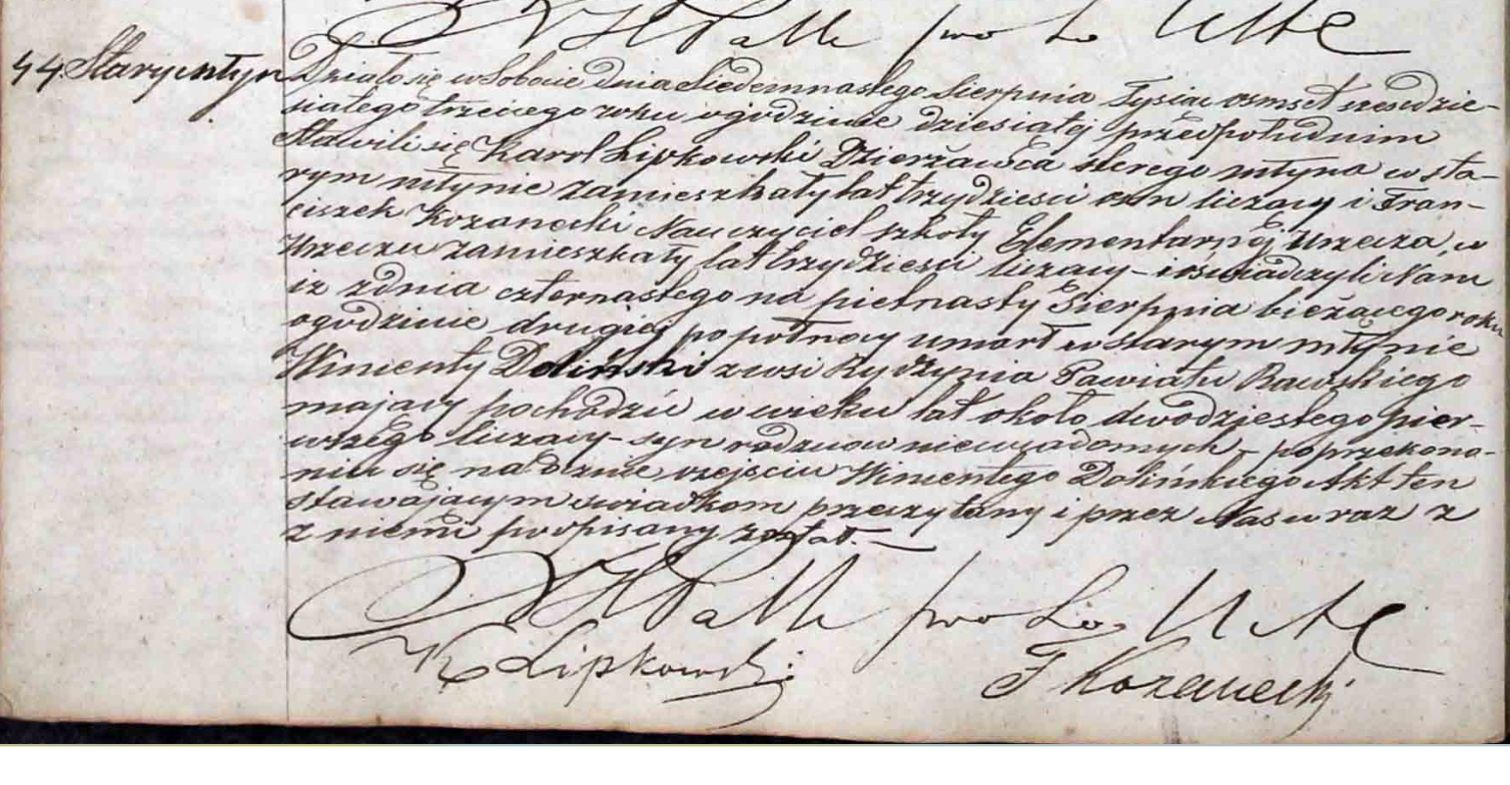 44. Stary młyn
Działo się w Sobocie dnia Siedemnastego Sierpnia Tysiąc osmset szescdzie-
siątego trzeciego roku o godzinie dziesiątej przed południem
Stawili się Karol Lipkowski Dzierżawca starego młyna w sta-
rym młynie zamieszkały lat trzydziesci osm liczący i Fran-
ciszek Kozanecki Nauczyciel szkoły Elementarnej Urzecza, w
Urzeczu zamieszkały lat trzydziesci liczący – i oswiadczyli Nam
iz z dnia czternastego na pietnasty Sierpnia bieżącego roku
o godzinie drugiej po połnocy umarł w starym młynie
Wincenty Doliński z wsi Rydzynia Powiatu Rawskiego
mający pochodzić w wieku lat około dwodziestego pier-
wszego liczący – syn rodzicow niewiadomych – po przekona-
niu się naocznie o zejsciu Wincentego Dolińskiego Akt ten
stawającym swiadkom przeczytany i przez Nas w raz z
z niemi podpisany został. –
K Lipkowski
F Kozanecki